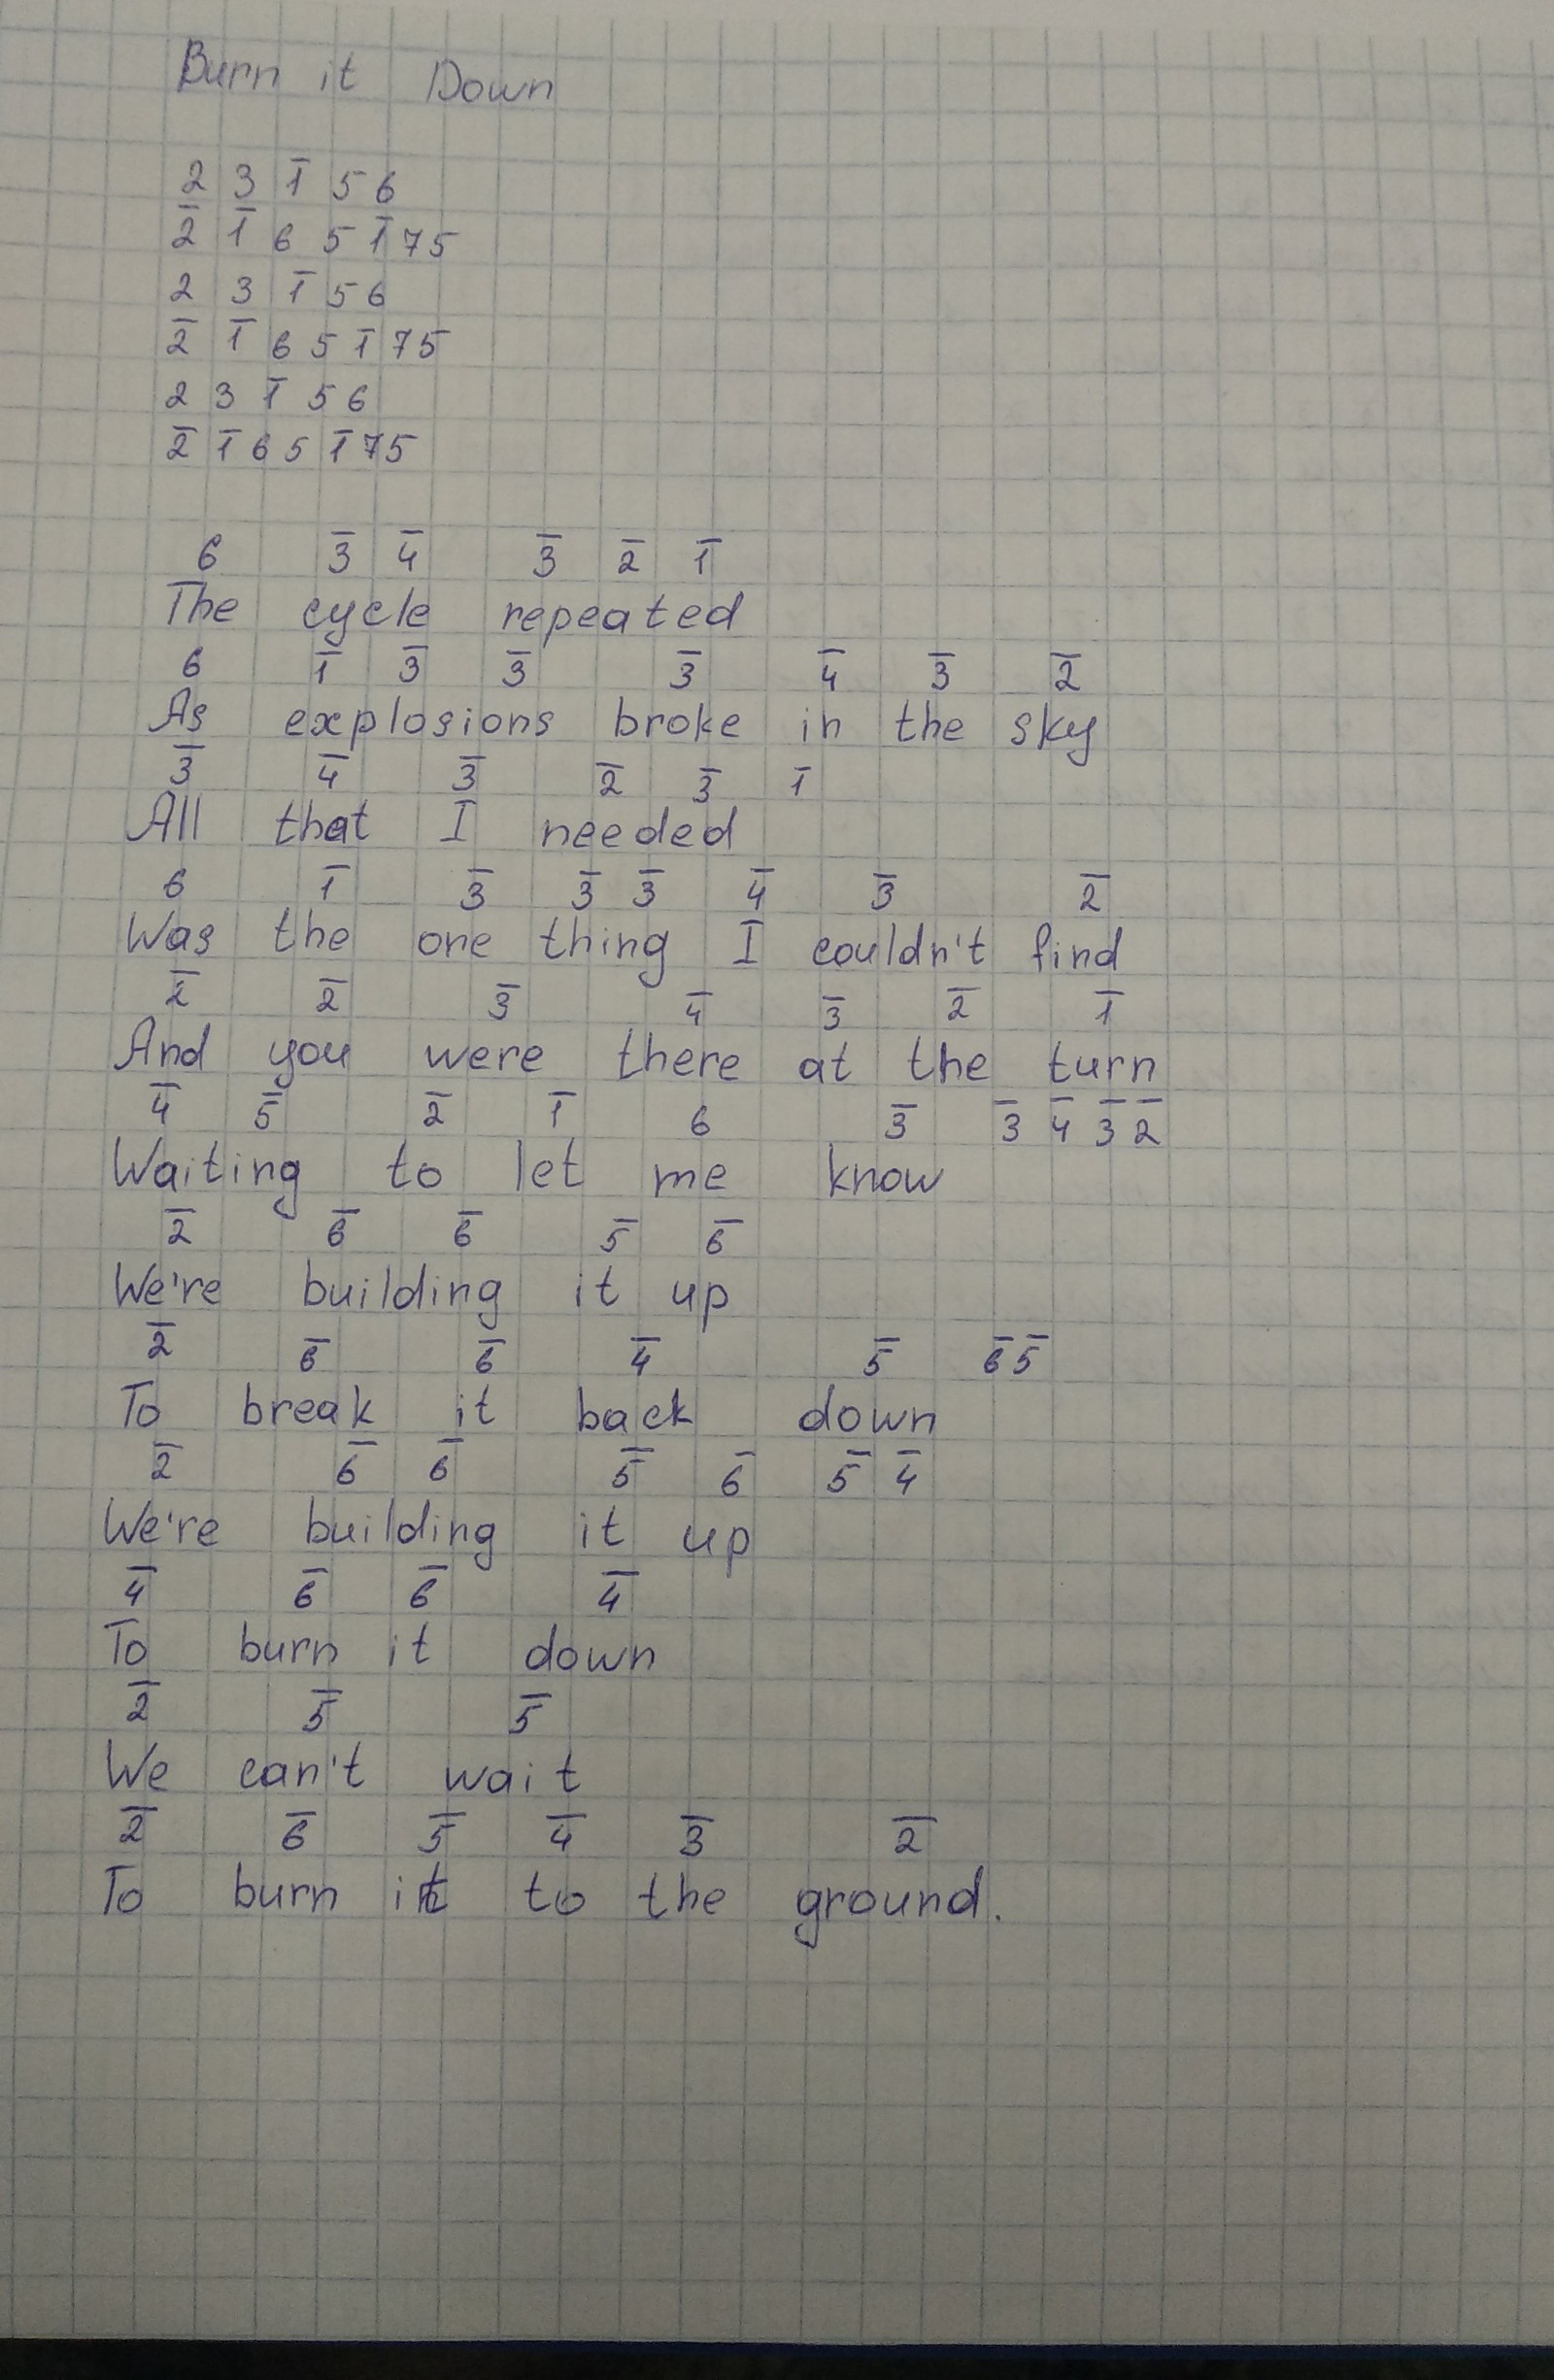 Burn it Down
2 3 1̅ 5 6
2̅ 1̅ 6 5 1̅ 7 5
2 3 1̅ 5 6
2̅ 1̅ 6 5 1̅ 7 5
2 3 1̅ 5 6
2̅ 1̅ 6 5 1̅ 7 5
6 3̅ 4̅ 3̅ 2̅ 1̅
The cycle repeated
6 1̅ 3̅ 3̅ 3̅ 4̅ 3̅ 2̅
As explosions broke in the sky
3̅ 4̅ 3̅ 2̅ 3̅ 1̅
All that I needed
6 1̅ 3̅ 3̅ 3̅ 4̅ 3̅ 2̅
Was the one thing I couldn't find
2̅ 2̅ 3̅ 4̅ 3̅ 2̅ 1̅
And you were there at the turn
4̅ 5̅ 2̅ 1̅ 6 3̅ 3̅ 4̅ 3̅ 2̅
Waiting to let me know
2̅ 6̅ 6̅ 5̅ 6̅
We're building it up
2̅ 6̅ 6̅ 4̅ 5̅ 6̅ 5̅
To break it back down
2̅ 6̅ 6̅ 5̅ 6̅ 5̅ 4̅
We're building it up
4̅ 6̅ 6̅ 4̅
To burn it down
2̅ 5̅ 5̅
We can't wait
2̅ 6̅ 5̅ 4̅ 3̅ 2̅
To burn it to the ground.